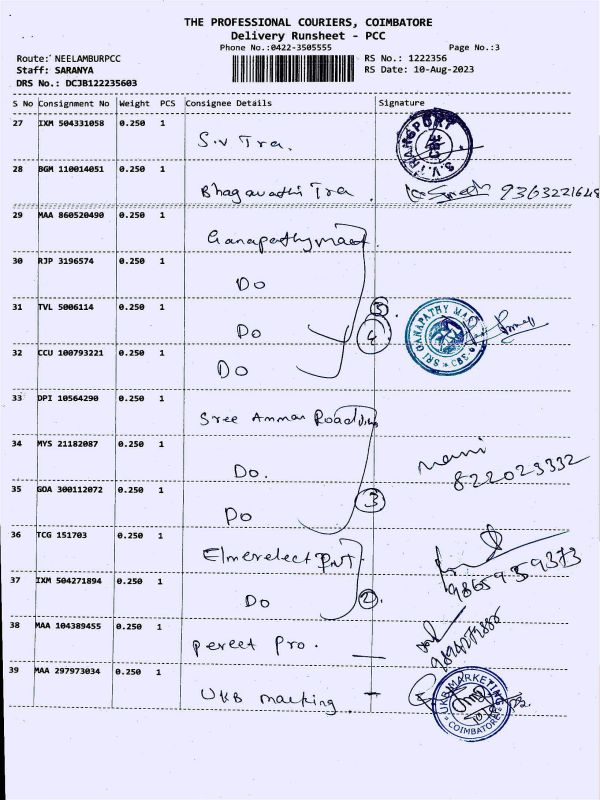 THE PROFESSIONAL COURIERS, COIMBATORE
Delivery Runsheet - PCC
Phone No.:0422-3505555
Page No.:3
Route: NEELAMBURPCC
RS No.: 1222356
Staff: SARANYA
RS Date: 10-Aug-2023
DRS No.: DCJB122235603
S No Consignment No Weight PCS Consignee Details Signature
27 IXM 504331058 0.250 1 S.V Tra. S.V. TRANSPORT
28 BGM 110014051 0.250 1 Bhagavathi Tra 9363221648
29 MAA 860520490 0.250 1
30 RJP 3196574 0.250 1 Do
31 TVL 5006114 0.250 1 Do
4 SRI GANAPATHY
32 CCU 100793221 0.250 1 Do
33 DPI 10564290 0.250 1 Sree Amman
34 MYS 21182087 0.250 1 Do. mani
822023332
35 GOA 300112072 0.250 1 Do 3
36 TCG 151703 0.250 1
9865959373
37 IXM 504271894 0.250 1 Do 2
38 MAA 104389455 0.250 1 Pro.
39 MAA 297973034 0.250 1 UKB UKB MARKETING
COIMBATORE